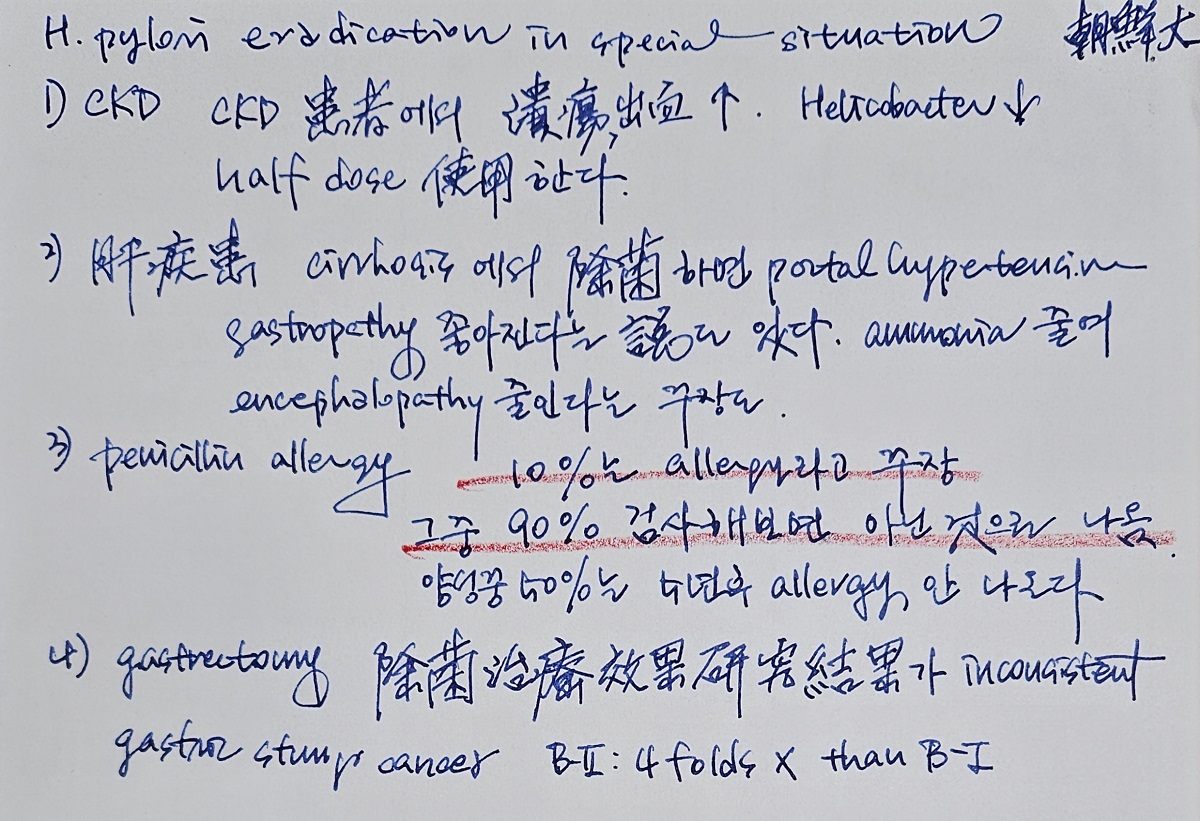 H. pylori eradication in special situation 朝鮮大
1) CKD CKD 患者에서 潰瘍, 出血 ↑. Helicobacter ↓
half dose 使用 한다.
2) 肝疾患 cirrhosis 에서 除菌 하면 portal hypertension
gastropathy 좋아진다는 說도 있다. ammonia 줄여
encephalopathy 줄인다는 주장도.
3) penicillin allergy 10%는 allergy라고 주장
그중 90% 검사해보면 아닌 것으로 나옴.
양성중 50%는 5년후 allergy 안 나온다
4) gastrectomy 除菌治療效果研究結果가 inconsistent
gastric stump cancer B-II : 4 folds X than B-I